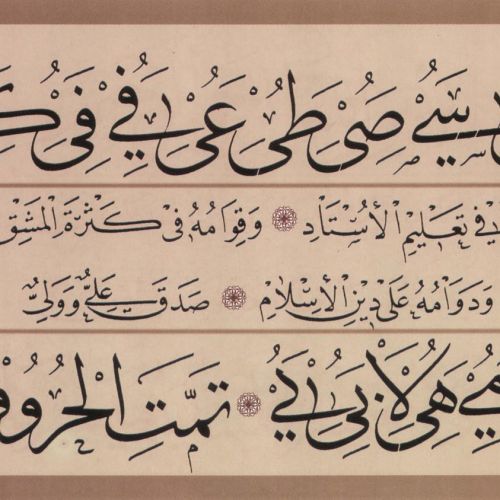 سي صى طى عى في قى ك
في تعليم الأستاد وقوامه في كثرة المشق
ودوامه على دين الإسلام صدق علي وولي
هي لا ى ي تمت الحروف